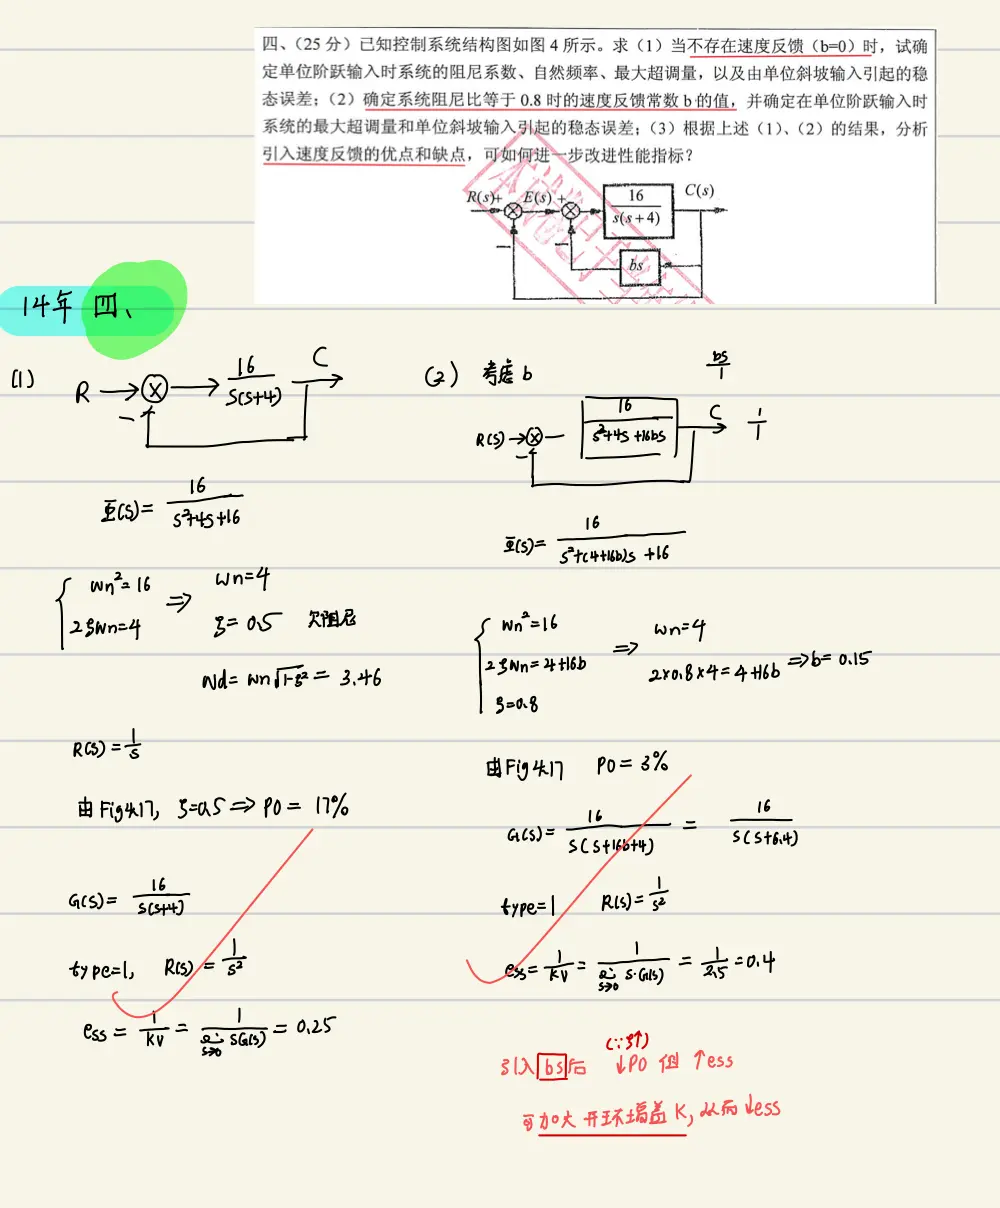 四、（25 分）已知控制系统结构图如图 4 所示。求（1）当不存在速度反馈（b=0）时，试确
定单位阶跃输入时系统的阻尼系数、自然频率、最大超调量，以及由单位斜坡输入引起的稳
态误差；（2）确定系统阻尼比等于 0.8 时的速度反馈常数 b 的值，并确定在单位阶跃输入时
系统的最大超调量和单位斜坡输入引起的稳态误差；（3）根据上述（1）、（2）的结果，分析
引入速度反馈的优点和缺点，可如何进一步改进性能指标？
R(s) + E(s) + 16/s(s+4) C(s)
− − bs
14年 四、
(1) R → ⊗ → 16/S(S+4) C
−
Φ(S)= 16/S²+4S+16
Wn²=16 ⇒ Wn=4
2ξWn=4 ξ=0.5 欠阻尼
Wd=Wn√1-ξ² = 3.46
R(S)=1/S
由Fig4.17, ξ=0.5 ⇒ PO= 17%
G(S)= 16/S(S+4)
type=1, R(S)=1/S²
ess = 1/KV = 1/lim s→0 SG(S) = 0.25
(2) 考虑b
bS/1
R(S) → ⊗ − 16/S²+4S+16bS C
1/1
−
Φ(S)= 16/S²+(4+16b)S+16
Wn²=16 ⇒ Wn=4
2ξWn=4+16b 2×0.8×4=4+16b ⇒ b=0.15
ξ=0.8
由Fig4.17 PO=3%
G(S)= 16/S(S+16b+4) = 16/S(S+6.4)
type=1 R(S)=1/S²
ess=1/KV=1/lim s→0 S·G(S) = 1/2.5=0.4
(∵ξ↑)
引入bs后 ↓PO 但 ↑ess
可加大开环增益K, 从而↓ess